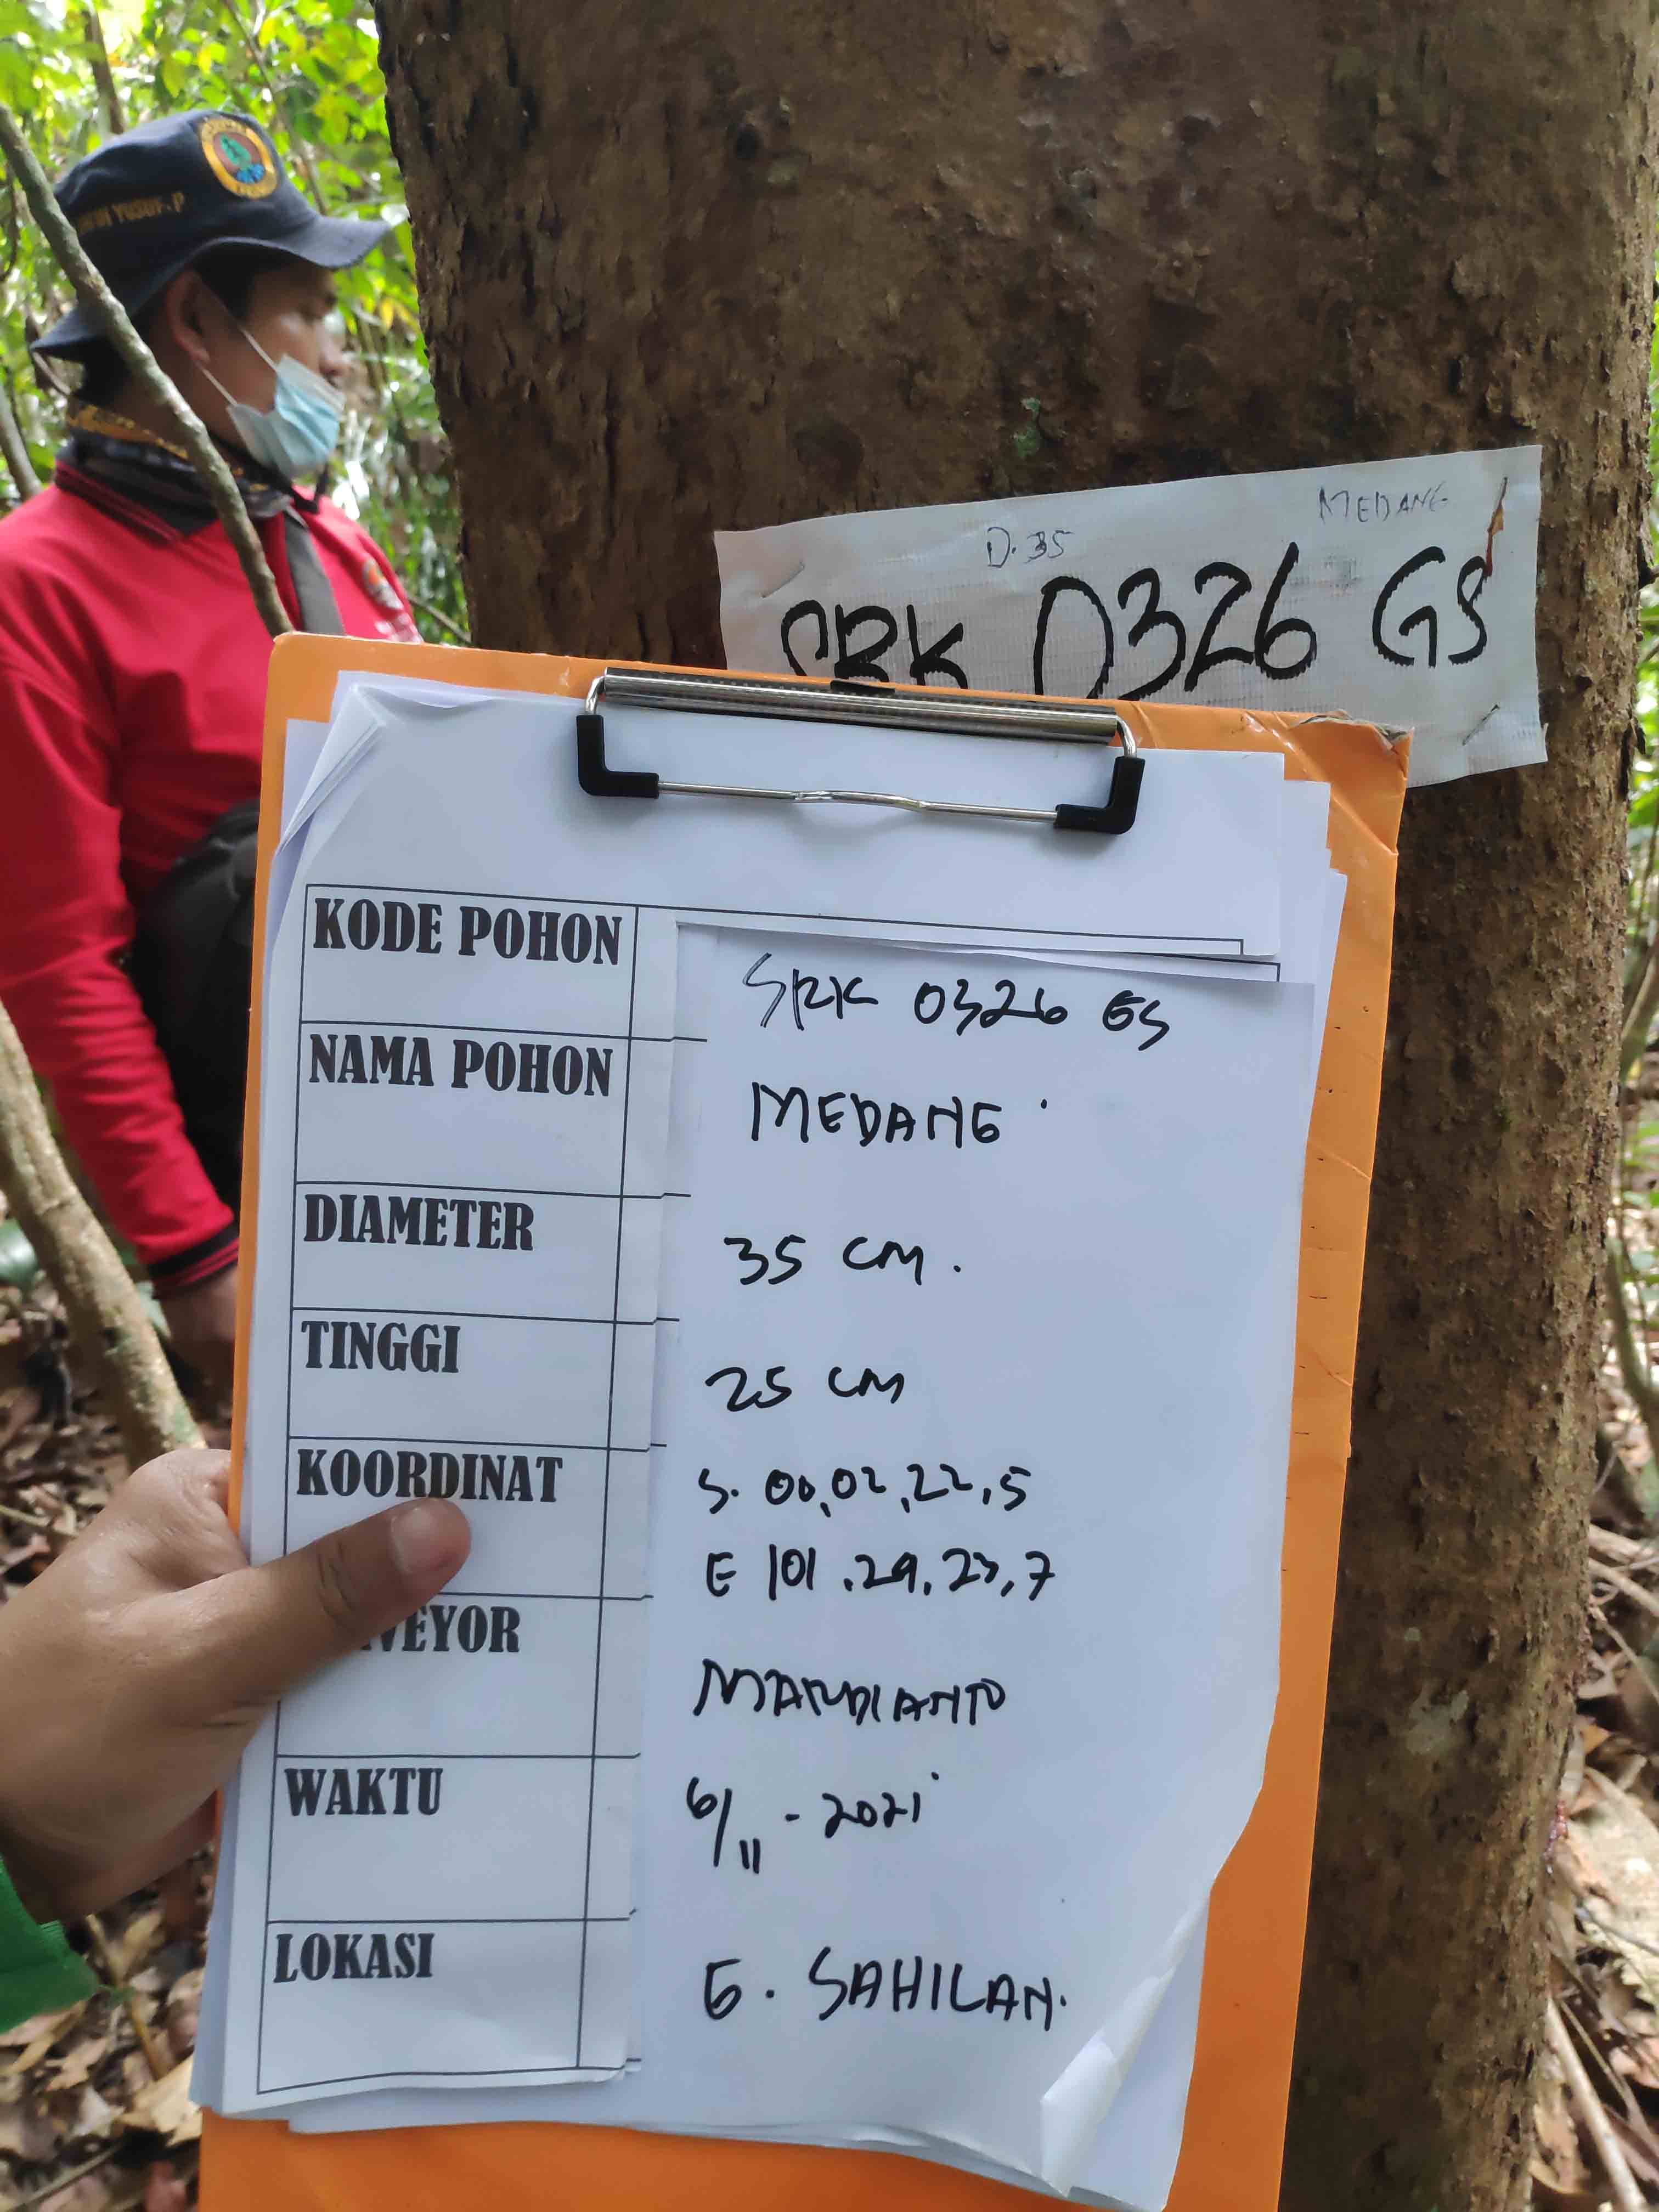 YUSUF. P
MEDANG
D. 35
SRK 0326 GS
KODE POHON SRK 0326 GS
NAMA POHON MEDANG
DIAMETER 35 CM.
TINGGI 25 CM
KOORDINAT S. 00,02,22,5
E 101.29.23,7
VEYOR MARDIANTO
WAKTU 6/11 - 2021
LOKASI G. SAHILAN.